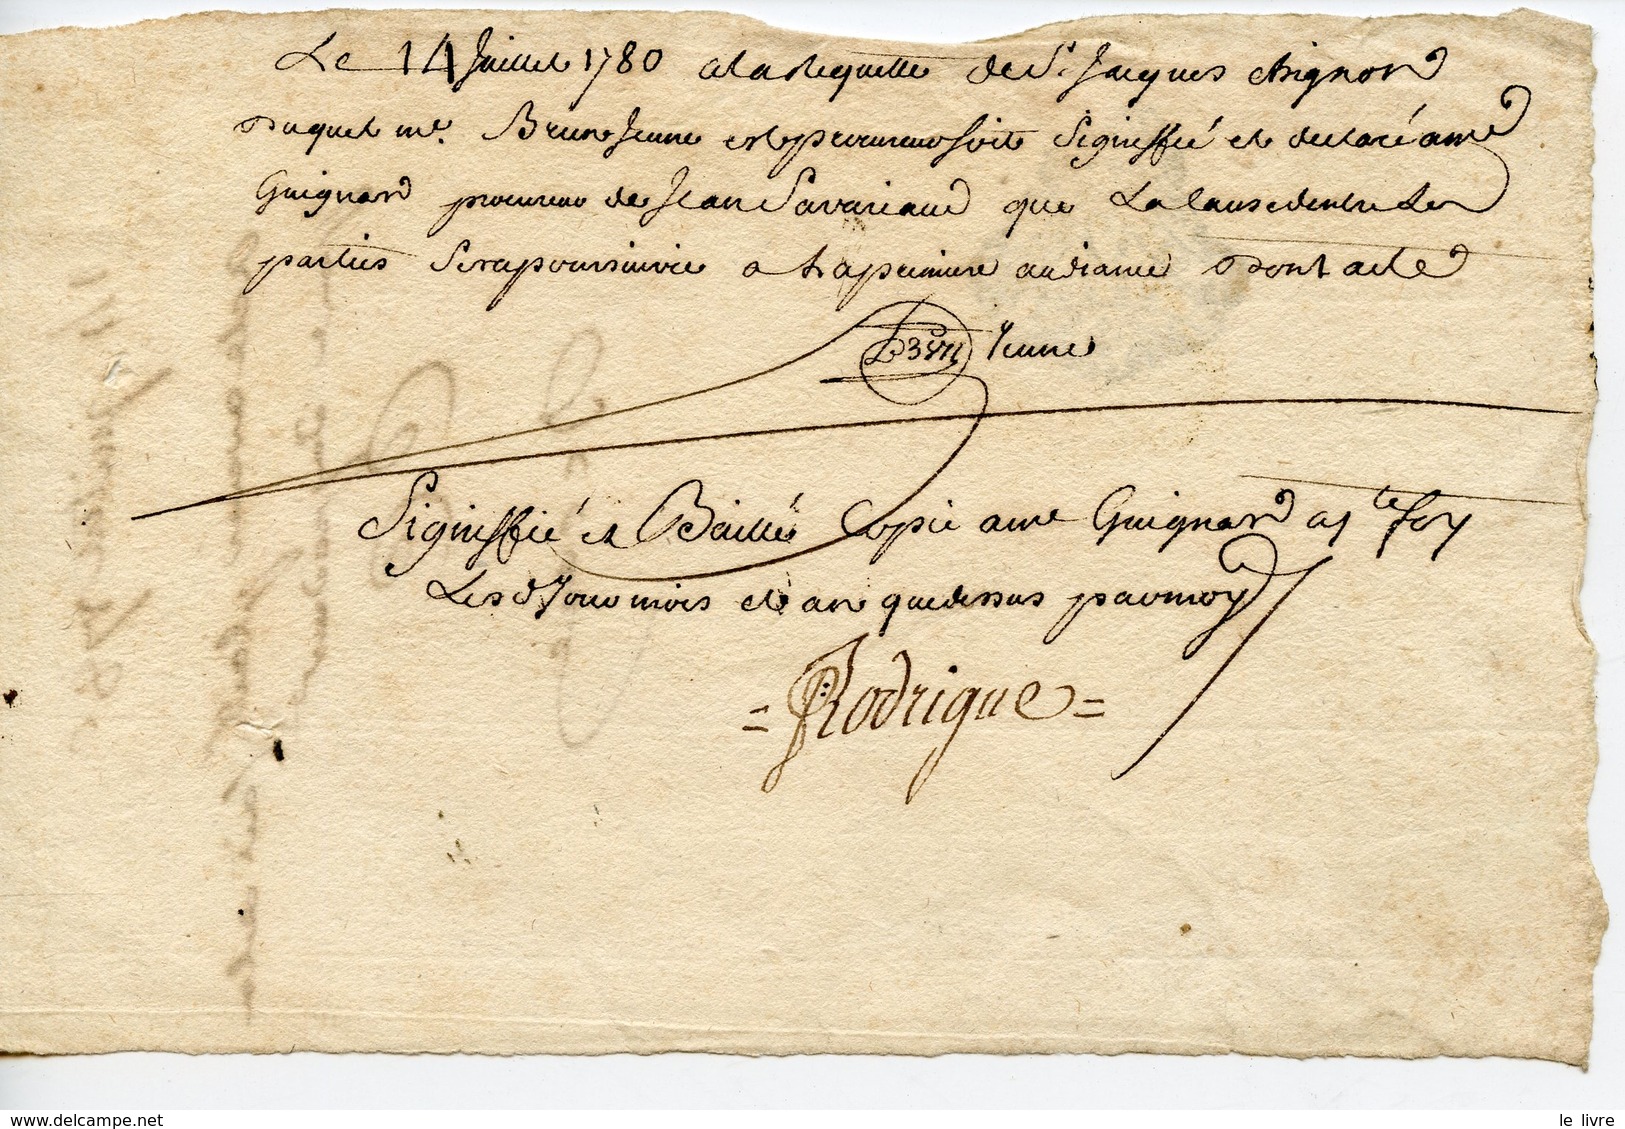 Le 14 Juillet 1780 a la Requette de Sr. Jacques Chignon
Duquel me. Brun Jeune est procureur soit Signiffié et declaré a me
Guignard procureur de Jean Savariaud que La Cause dentre Les
parties Sera poursuivie a La premiere audiance Dont acte
Brun Jeune
Signiffié et Baillé Copie a me Guignard
Les Jour mois et an que dessus par moy
= Rodrigue =
le livre
www.delcampe.net